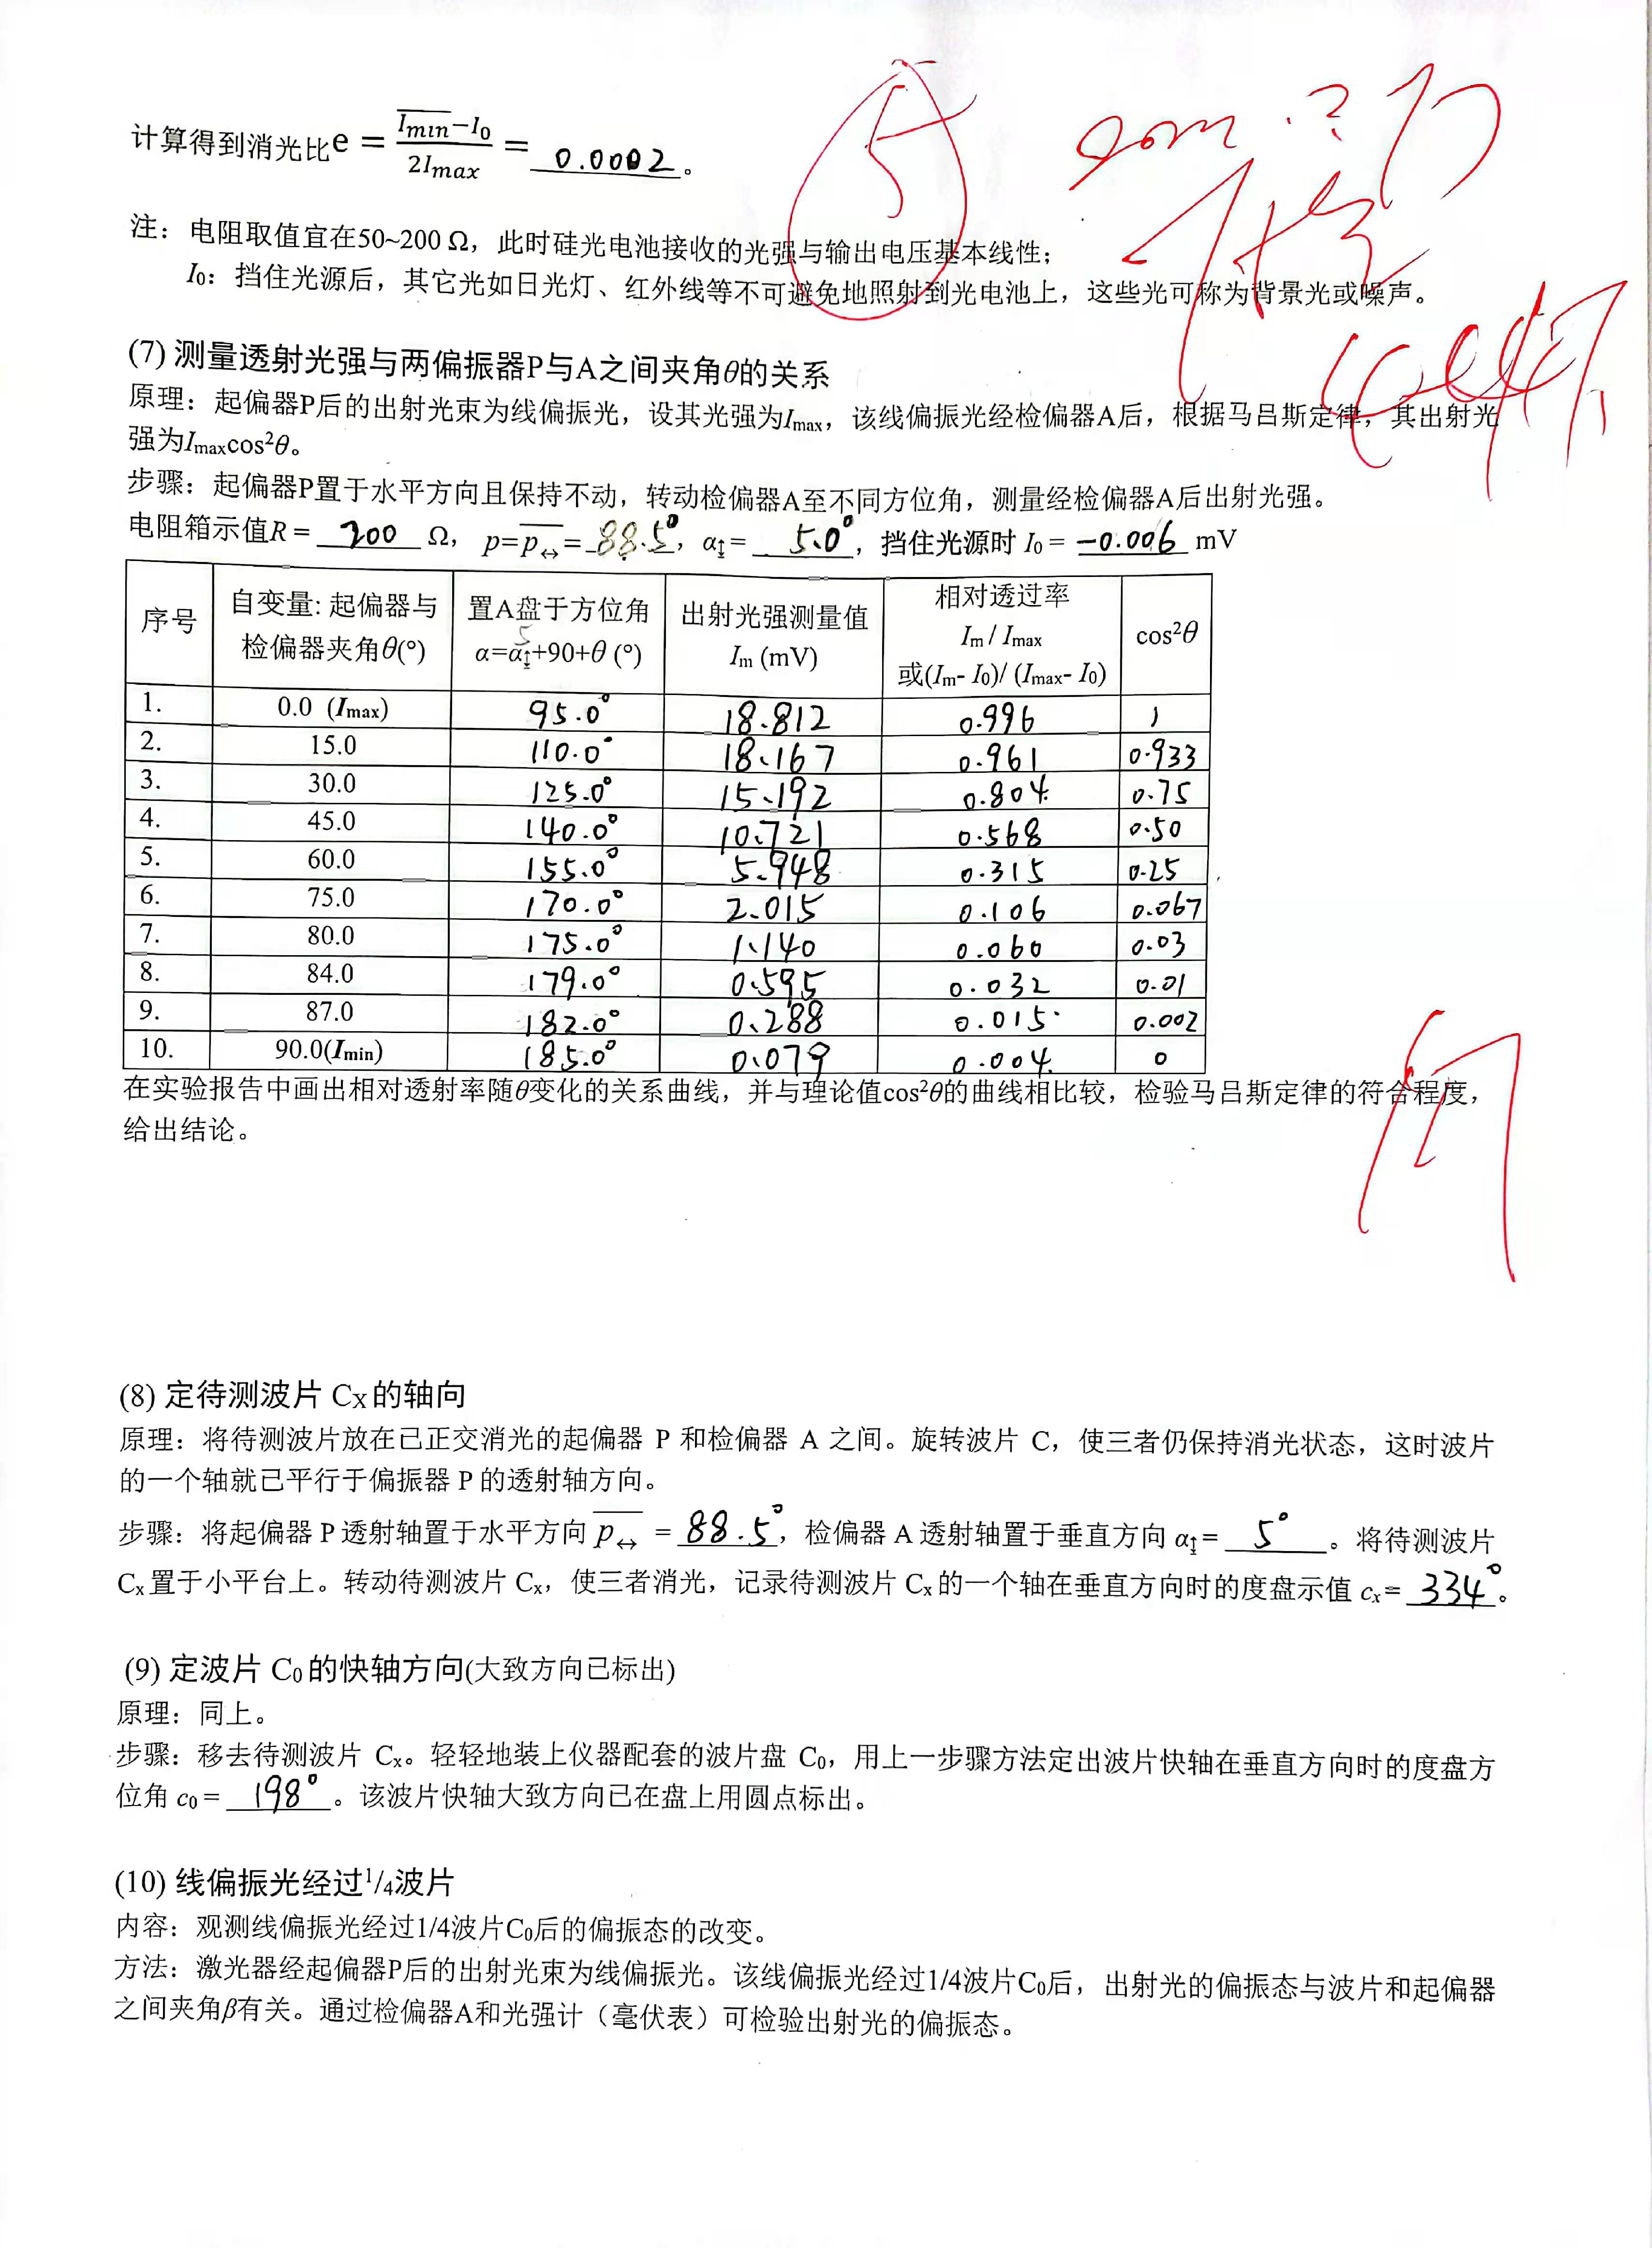 计算得到消光比e = (I̅m̅i̅n̅−I₀)/(2Imax) = 0.0002 。
注：电阻取值宜在50~200 Ω，此时硅光电池接收的光强与输出电压基本线性；
I₀：挡住光源后，其它光如日光灯、红外线等不可避免地照射到光电池上，这些光可称为背景光或噪声。
(7) 测量透射光强与两偏振器P与A之间夹角θ的关系
原理：起偏器P后的出射光束为线偏振光，设其光强为Imax，该线偏振光经检偏器A后，根据马吕斯定律，其出射光
强为Imaxcos²θ。
步骤：起偏器P置于水平方向且保持不动，转动检偏器A至不同方位角，测量经检偏器A后出射光强。
电阻箱示值R = 200 Ω, p=p↔= 88.5°, α↕= 5.0°, 挡住光源时 I₀ = -0.006 mV
序号 自变量: 起偏器与检偏器夹角θ(°) 置A盘于方位角 α=α↕+90+θ (°) 5 出射光强测量值 Im (mV) 相对透过率 Im / Imax 或(Im- I₀)/ (Imax- I₀) cos²θ
1. 0.0 (Imax) 95.0° 18.812 0.996 1
2. 15.0 110.0° 18.167 0.961 0.933
3. 30.0 125.0° 15.192 0.804 0.75
4. 45.0 140.0° 10.721 0.568 0.50
5. 60.0 155.0° 5.948 0.315 0.25
6. 75.0 170.0° 2.015 0.106 0.067
7. 80.0 175.0° 1.140 0.060 0.03
8. 84.0 179.0° 0.595 0.032 0.01
9. 87.0 182.0° 0.288 0.015 0.002
10. 90.0(Imin) 185.0° 0.079 0.004 0
在实验报告中画出相对透射率随θ变化的关系曲线，并与理论值cos²θ的曲线相比较，检验马吕斯定律的符合程度，
给出结论。
(8) 定待测波片 Cx的轴向
原理：将待测波片放在已正交消光的起偏器 P 和检偏器 A 之间。旋转波片 C，使三者仍保持消光状态，这时波片
的一个轴就已平行于偏振器 P 的透射轴方向。
步骤：将起偏器 P 透射轴置于水平方向 p↔ = 88.5°, 检偏器 A 透射轴置于垂直方向 α↕= 5° 。将待测波片
Cx 置于小平台上。转动待测波片 Cx，使三者消光，记录待测波片 Cx 的一个轴在垂直方向时的度盘示值 cx= 334° 。
(9) 定波片 C₀的快轴方向(大致方向已标出)
原理：同上。
步骤：移去待测波片 Cx。轻轻地装上仪器配套的波片盘 C₀，用上一步骤方法定出波片快轴在垂直方向时的度盘方
位角 c₀ = 198° 。该波片快轴大致方向已在盘上用圆点标出。
(10) 线偏振光经过¹/₄波片
内容：观测线偏振光经过1/4波片C₀后的偏振态的改变。
方法：激光器经起偏器P后的出射光束为线偏振光。该线偏振光经过1/4波片C₀后，出射光的偏振态与波片和起偏器
之间夹角β有关。通过检偏器A和光强计（毫伏表）可检验出射光的偏振态。